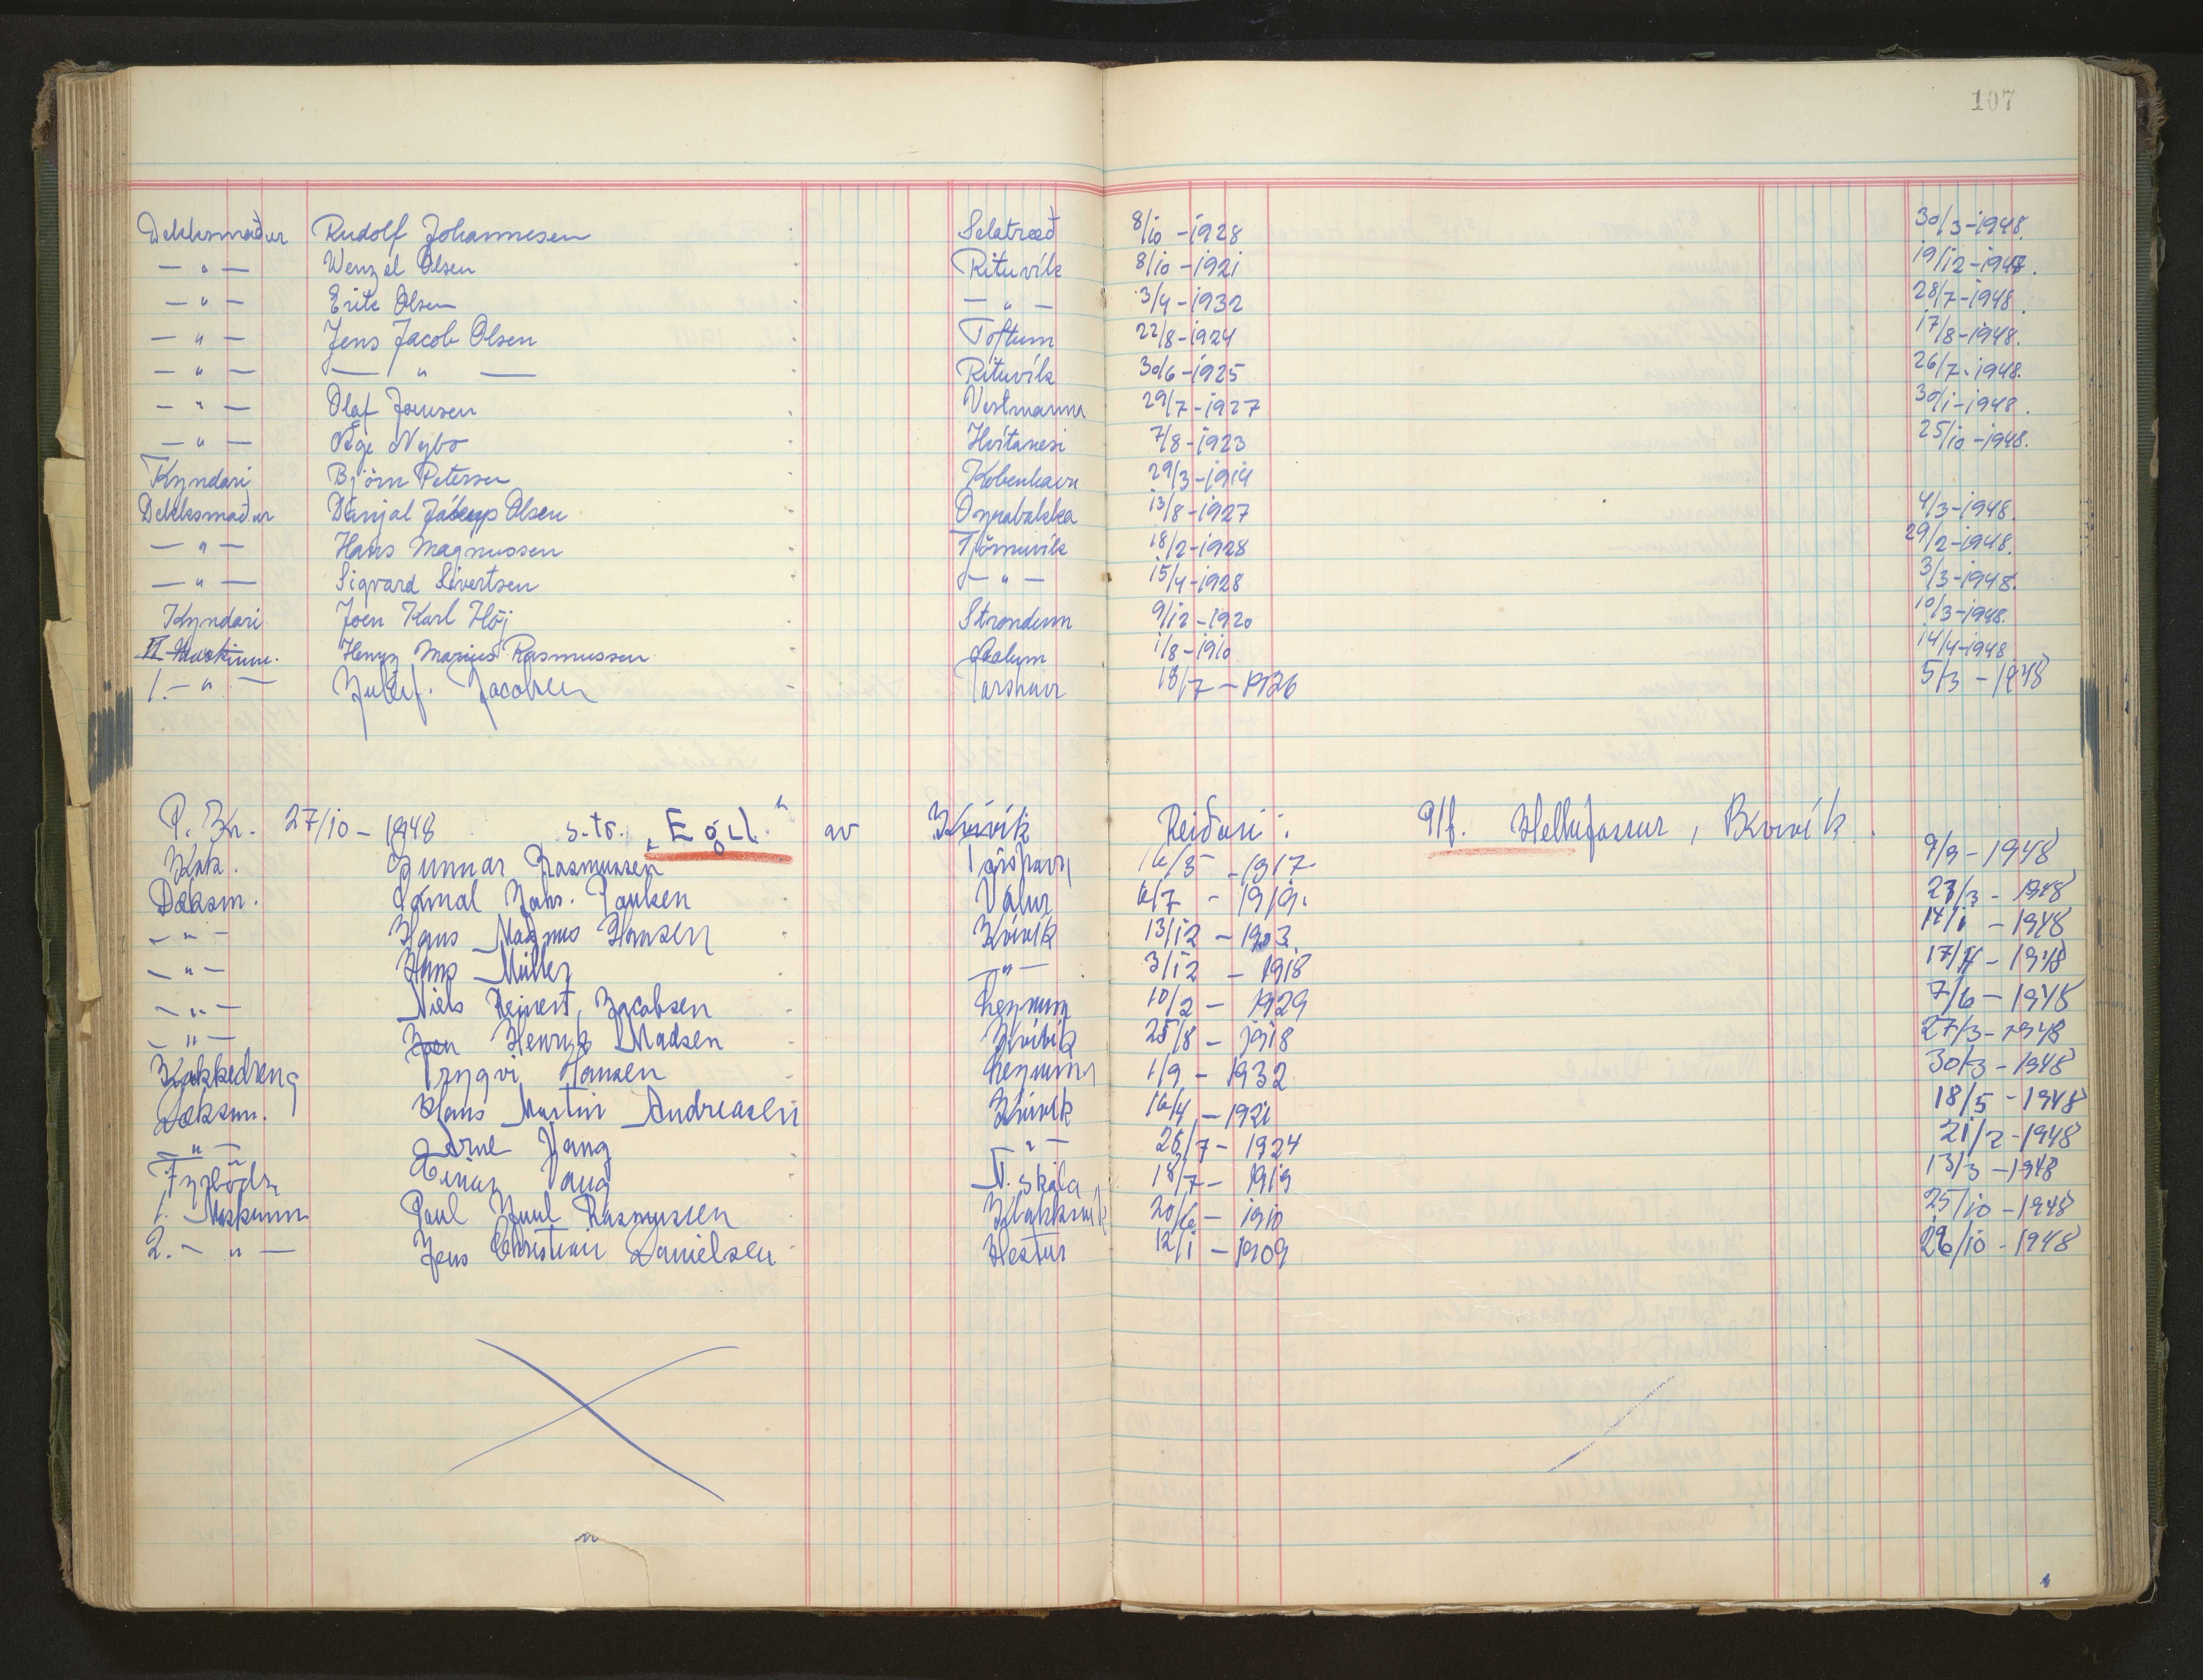 107
Dekksmaður Rudolf Johannesen Selatrað 8/10-1928 30/3-1948.
— " — Wenzel Olsen Rituvík 8/10-1921 19/12-1947.
— " — Erik Olsen — " — 3/4-1932 28/7-1948.
— " — Jens Jacob Olsen Toftum 22/8-1924 17/8-1948.
— " — — " — Rituvík 30/6-1925 26/7-1948.
— " — Olaf Joensen Vestmanna 29/7-1927 30/1-1948.
— " — Åge Nybo Hvítanesi 7/8-1923 25/10-1948.
Kyndari Björn Petersen Kobenhavn 29/3-1914
Dekksmaður Danjal Jákup Olsen Oyrabakka 13/8-1927 4/3-1948.
— " — Hans Magnussen Tjörnuvík 18/2-1928 29/2-1948.
— " — Sigvard Sivertsen — " — 15/4-1928 3/3-1948.
Kyndari Joen Karl Höj Strondum 9/12-1920 10/3-1948.
II Maskinm. Henry Marius Rasmussen 1/8-1910 14/4-1948
1. — " — Jacobsen Torshavn 18/7-1926 5/3-1948
P. Kr. 27/10-1948 s.tr. "Egil" av Kvívík Reiðari: P/f. Hellufossur, Kvívík.
Kok. Gunnar Rasmussen Torshavn 16/5-1917 9/9-1948
Deksm. Johs. Paulsen Válur 6/7-1919. 27/3-1948
— " — Hans Magnus Hansen Kvívík 13/12-1903. 14/1-1948
— " — Hans Müller — " — 3/12-1918 17/4-1948
— " — Niels Reinert Jacobsen Leynum 10/2-1929 7/6-1948
— " — Joen Henryk Madsen Kvívík 25/8-1918 27/3-1948
Kokkedreng Tryggvi Hansen Leynum 1/9-1932 30/3-1948
Deksm. Hans Martin Andreasen Kvívík 16/4-1921 18/5-1948
— " — Arne Vang — " — 26/7-1924 21/2-1948
Fyrbödr. Einar Vang N. skála 18/7-1919 13/3-1948
1. Maskinm Paul Juul Rasmussen Klakksvík 20/6-1910 25/10-1948
2. — " — Jens Christian Danielsen Hestur 12/1-1909 26/10-1948